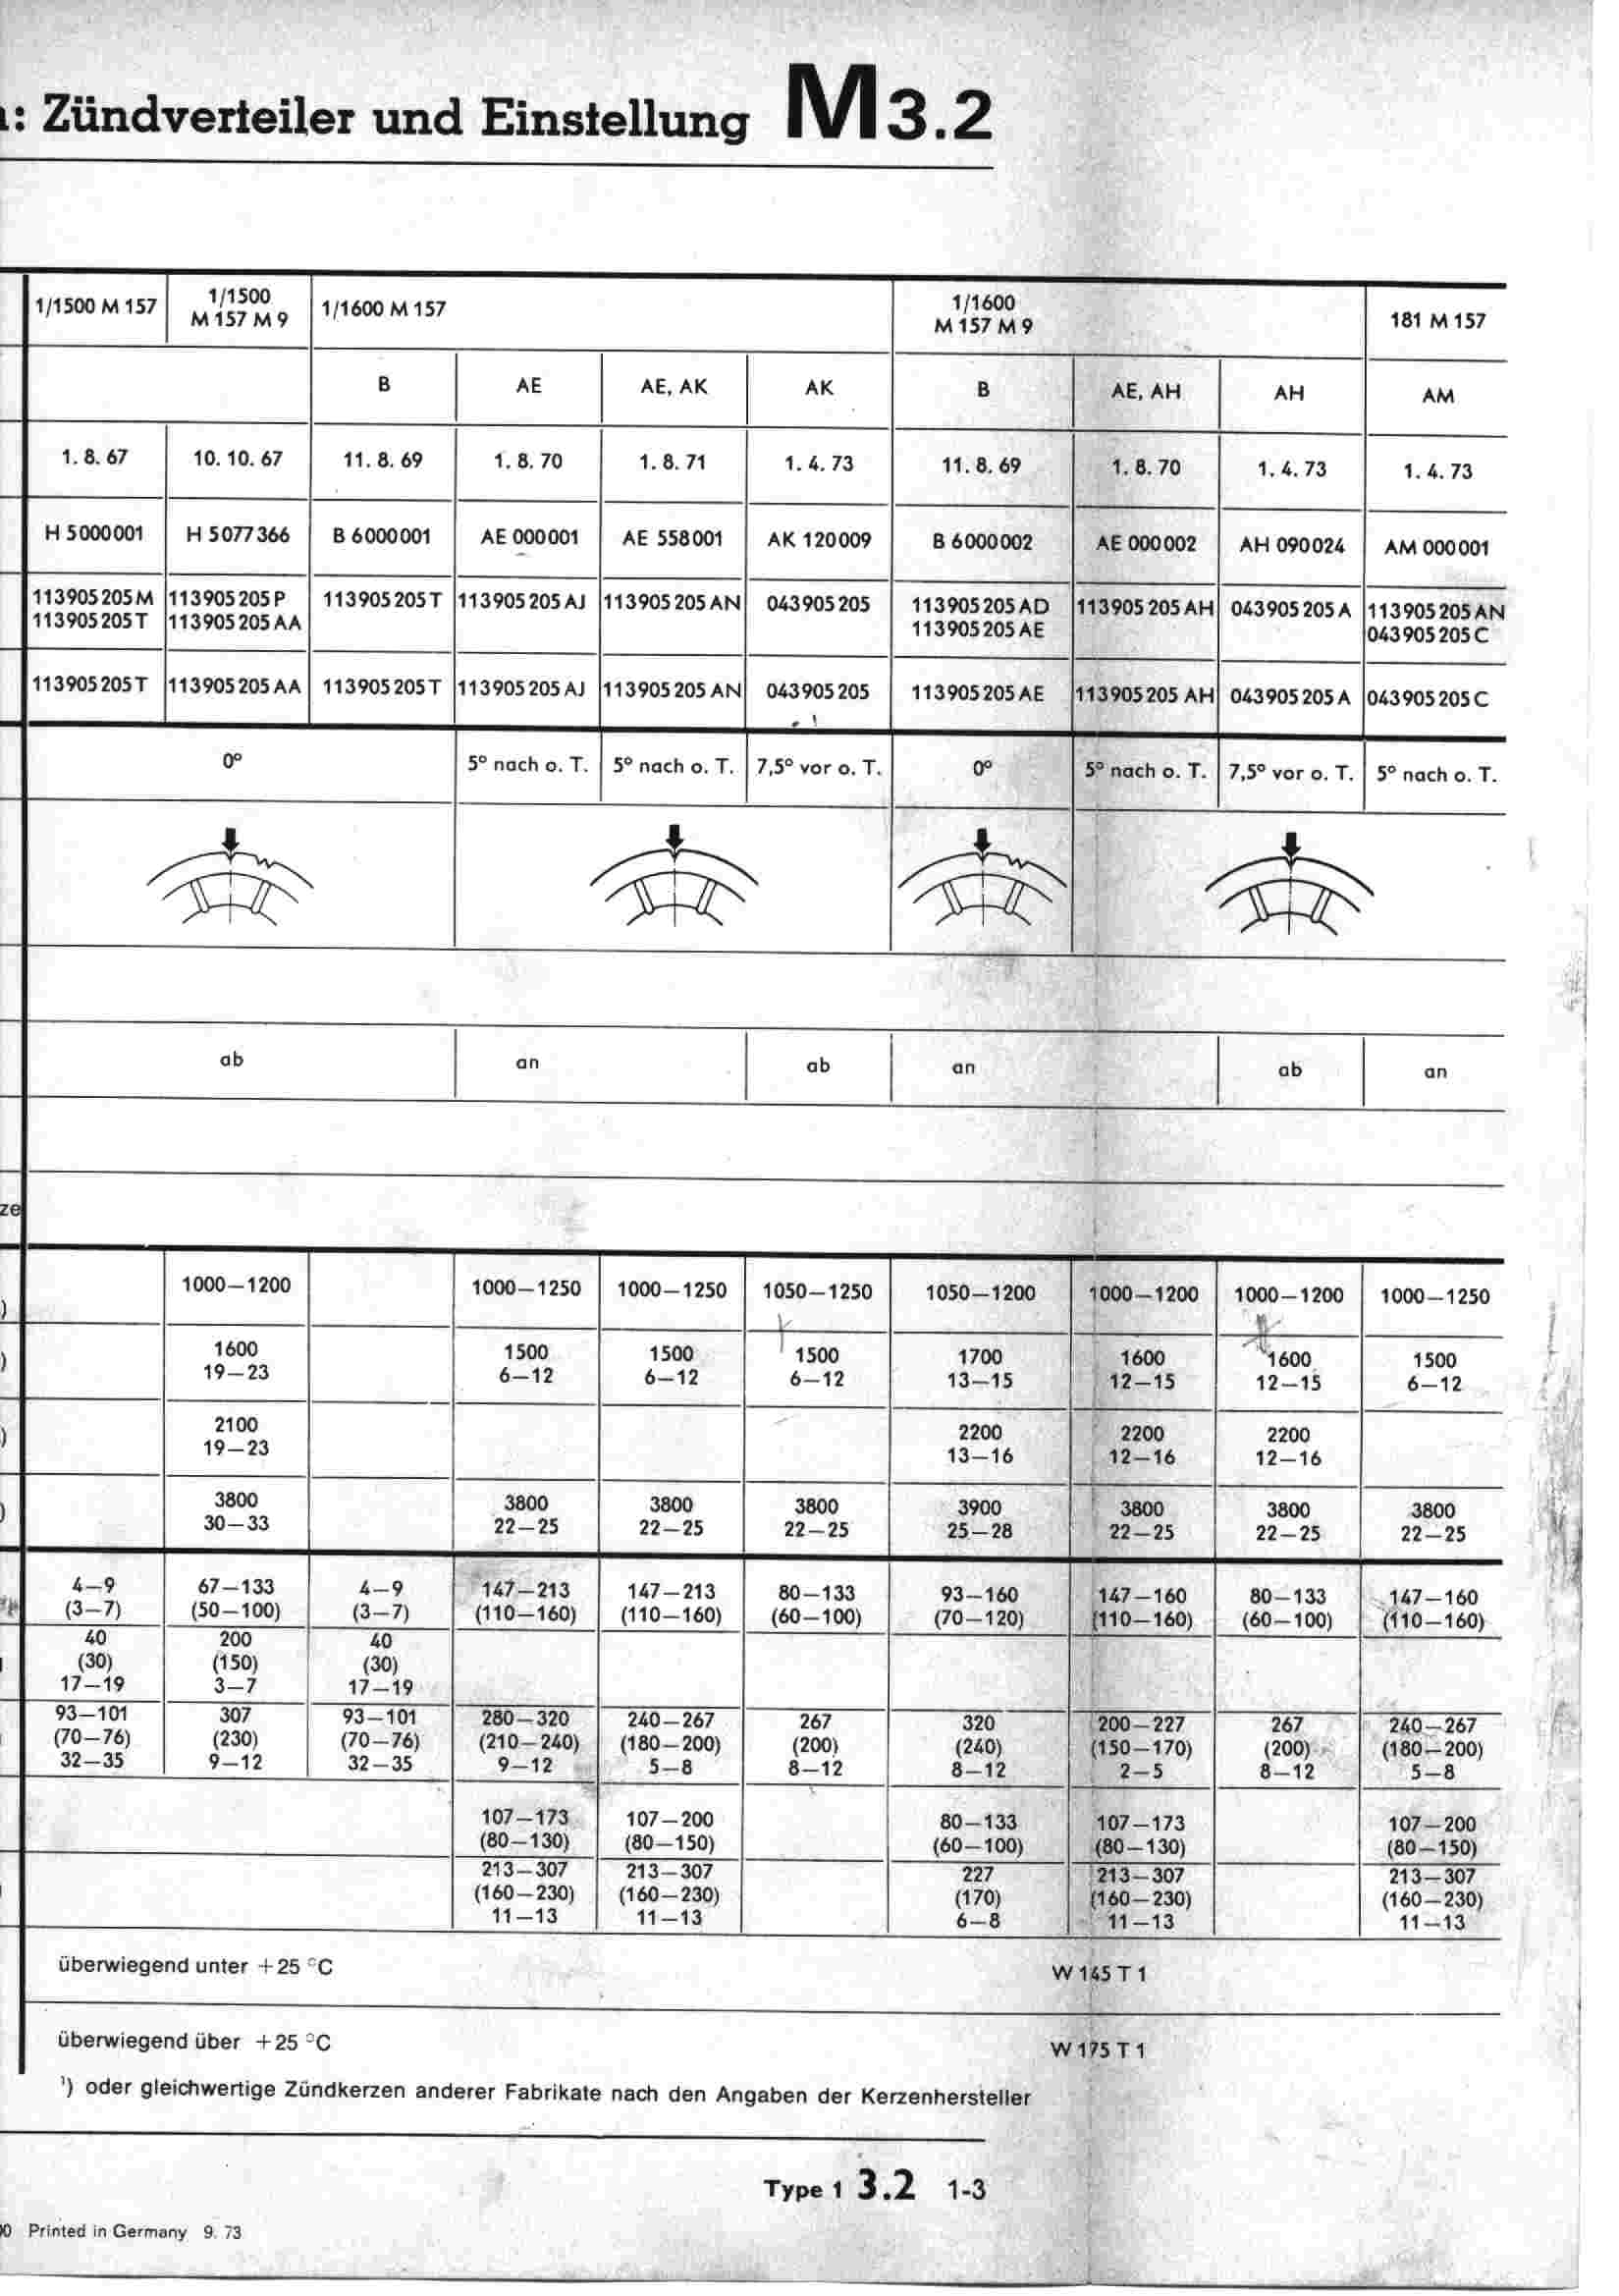 : Zündverteiler und Einstellung M 3.2
1/1500 M 157 1/1500 M 157 M 9 1/1600 M 157 1/1600 M 157 M 9 181 M 157
B AE AE, AK AK B AE, AH AH AM
1. 8. 67 10. 10. 67 11. 8. 69 1. 8. 70 1. 8. 71 1. 4. 73 11. 8. 69 1. 8. 70 1. 4. 73 1. 4. 73
H 5000001 H 5077366 B 6000001 AE 000001 AE 558001 AK 120009 B 6000002 AE 000002 AH 090024 AM 000001
113905205M 113905205P 113905205T 113905205AJ 113905205AN 043905205 113905205AD 113905205AH 043905205A 113905205AN
113905205T 113905205AA 113905205AE 043905205C
113905205T 113905205AA 113905205T 113905205AJ 113905205AN 043905205 113905205AE 113905205AH 043905205A 043905205C
0° 5° nach o. T. 5° nach o. T. 7,5° vor o. T. 0° 5° nach o. T. 7,5° vor o. T. 5° nach o. T.
ab an ab an ab an
ze
) 1000—1200 1000—1250 1000—1250 1050—1250 1050—1200 1000—1200 1000—1200 1000—1250
) 1600 1500 1500 1500 1700 1600 1600 1500
19—23 6—12 6—12 6—12 13—15 12—15 12—15 6—12
) 2100 2200 2200 2200
19—23 13—16 12—16 12—16
) 3800 3800 3800 3800 3900 3800 3800 3800
30—33 22—25 22—25 22—25 25—28 22—25 22—25 22—25
4—9 67—133 4—9 147—213 147—213 80—133 93—160 147—160 80—133 147—160
(3—7) (50—100) (3—7) (110—160) (110—160) (60—100) (70—120) (110—160) (60—100) (110—160)
40 200 40
(30) (150) (30)
17—19 3—7 17—19
93—101 307 93—101 280—320 240—267 267 320 200—227 267 240—267
(70—76) (230) (70—76) (210—240) (180—200) (200) (240) (150—170) (200) (180—200)
32—35 9—12 32—35 9—12 5—8 8—12 8—12 2—5 8—12 5—8
107—173 107—200 80—133 107—173 107—200
(80—130) (80—150) (60—100) (80—130) (80—150)
213—307 213—307 227 213—307 213—307
(160—230) (160—230) (170) (160—230) (160—230)
11—13 11—13 6—8 11—13 11—13
überwiegend unter +25 °C W 145 T 1
überwiegend über +25 °C W 175 T 1
¹) oder gleichwertige Zündkerzen anderer Fabrikate nach den Angaben der Kerzenhersteller
Type 1 3.2 1-3
Printed in Germany 9. 73